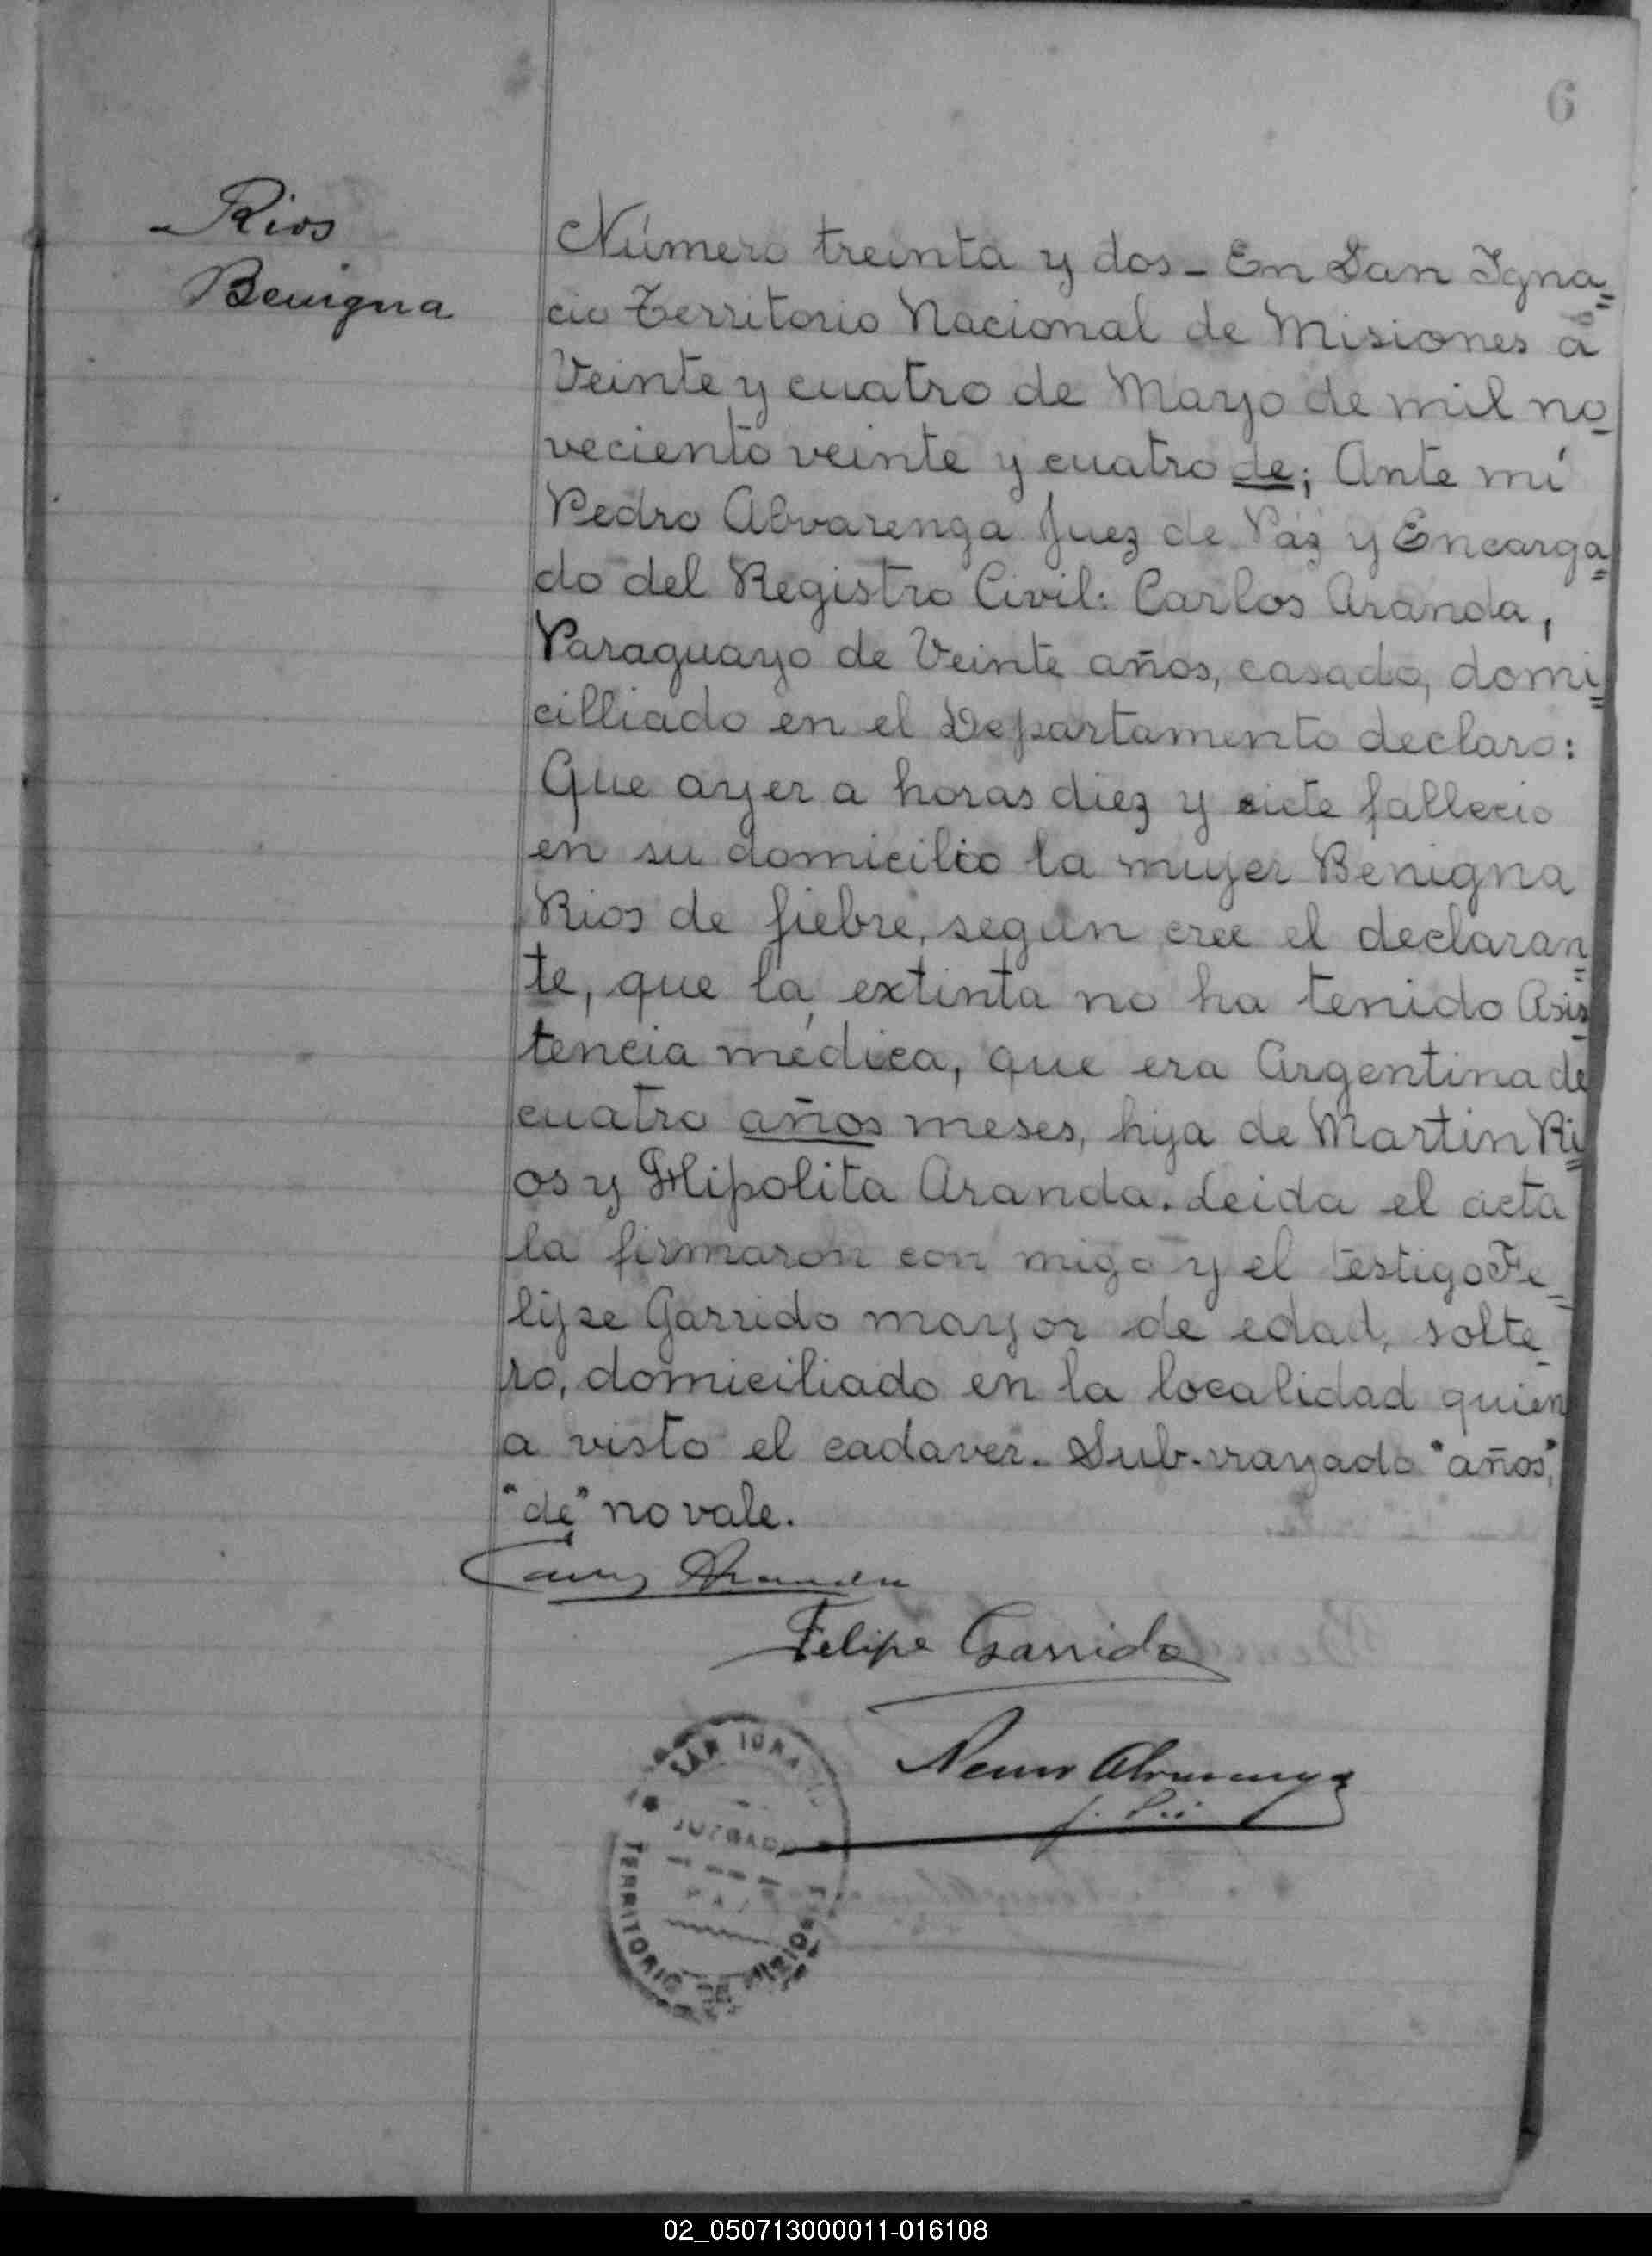 6
Rios
Benigna
Número treinta y dos - En San Igna=
cio Territorio Nacional de Misiones a
Veinte y cuatro de Mayo de mil no
veciento veinte y cuatro de; Ante mí
Pedro Alvarenga Juez de Paz y Encarga=
do del Registro Civil: Carlos Aranda,
Paraguayo de Veinte años, casado, domi=
cilliado en el Departamento declaro:
Que ayer a horas diez y siete fallecio
en su domicilio la mujer Benigna
Rios de fiebre, segun cree el declaran=
te, que la extinta no ha tenido Asis
tencia médica, que era Argentina de
cuatro años meses, hija de Martin Ri=
os y Hipolita Aranda. Leida el acta
la firmaron con migo y el testigo Fe=
lipe Garrido mayor de edad, solte
ro, domiciliado en la localidad quien
a visto el cadaver. Sub-rrayado "años",
"de" no vale.
Aranda
Felipe Garrido
Alvarenga
SAN IGNACIO
JUZGADO
PAZ
TERRITORIO DE MISIONES
02_050713000011-016108